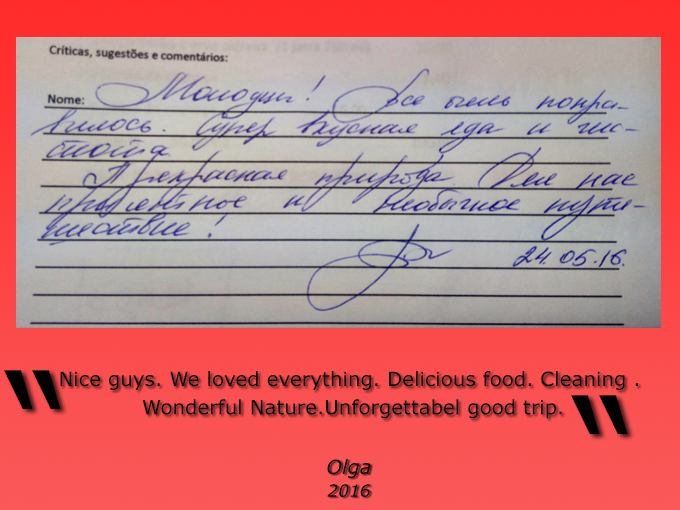 Críticas, sugestões e comentários:
Nome: Молодцы! Все очень понра-
вилось. Супер вкусная еда и чис-
тота.
Прекрасная природа. Для нас
и необычное путе-
шествие!
24.05.16.
"Nice guys. We loved everything. Delicious food. Cleaning .
Wonderful Nature.Unforgettabel good trip."
Olga
2016